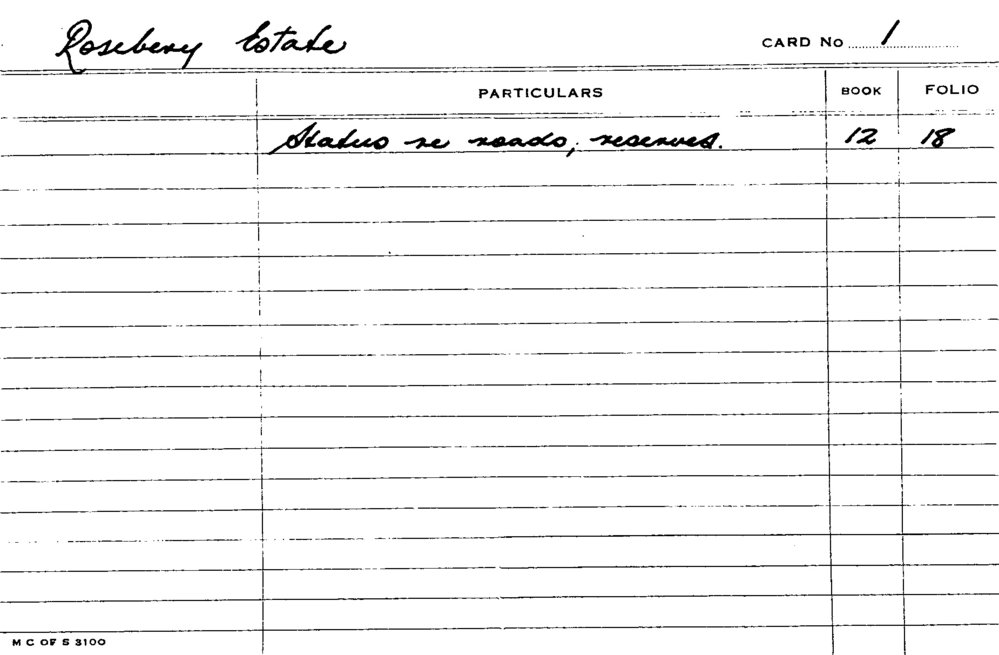 Rosebery Estate CARD No 1
PARTICULARS BOOK FOLIO
Status re roads, reserves. 12 18
M C OF S 3100